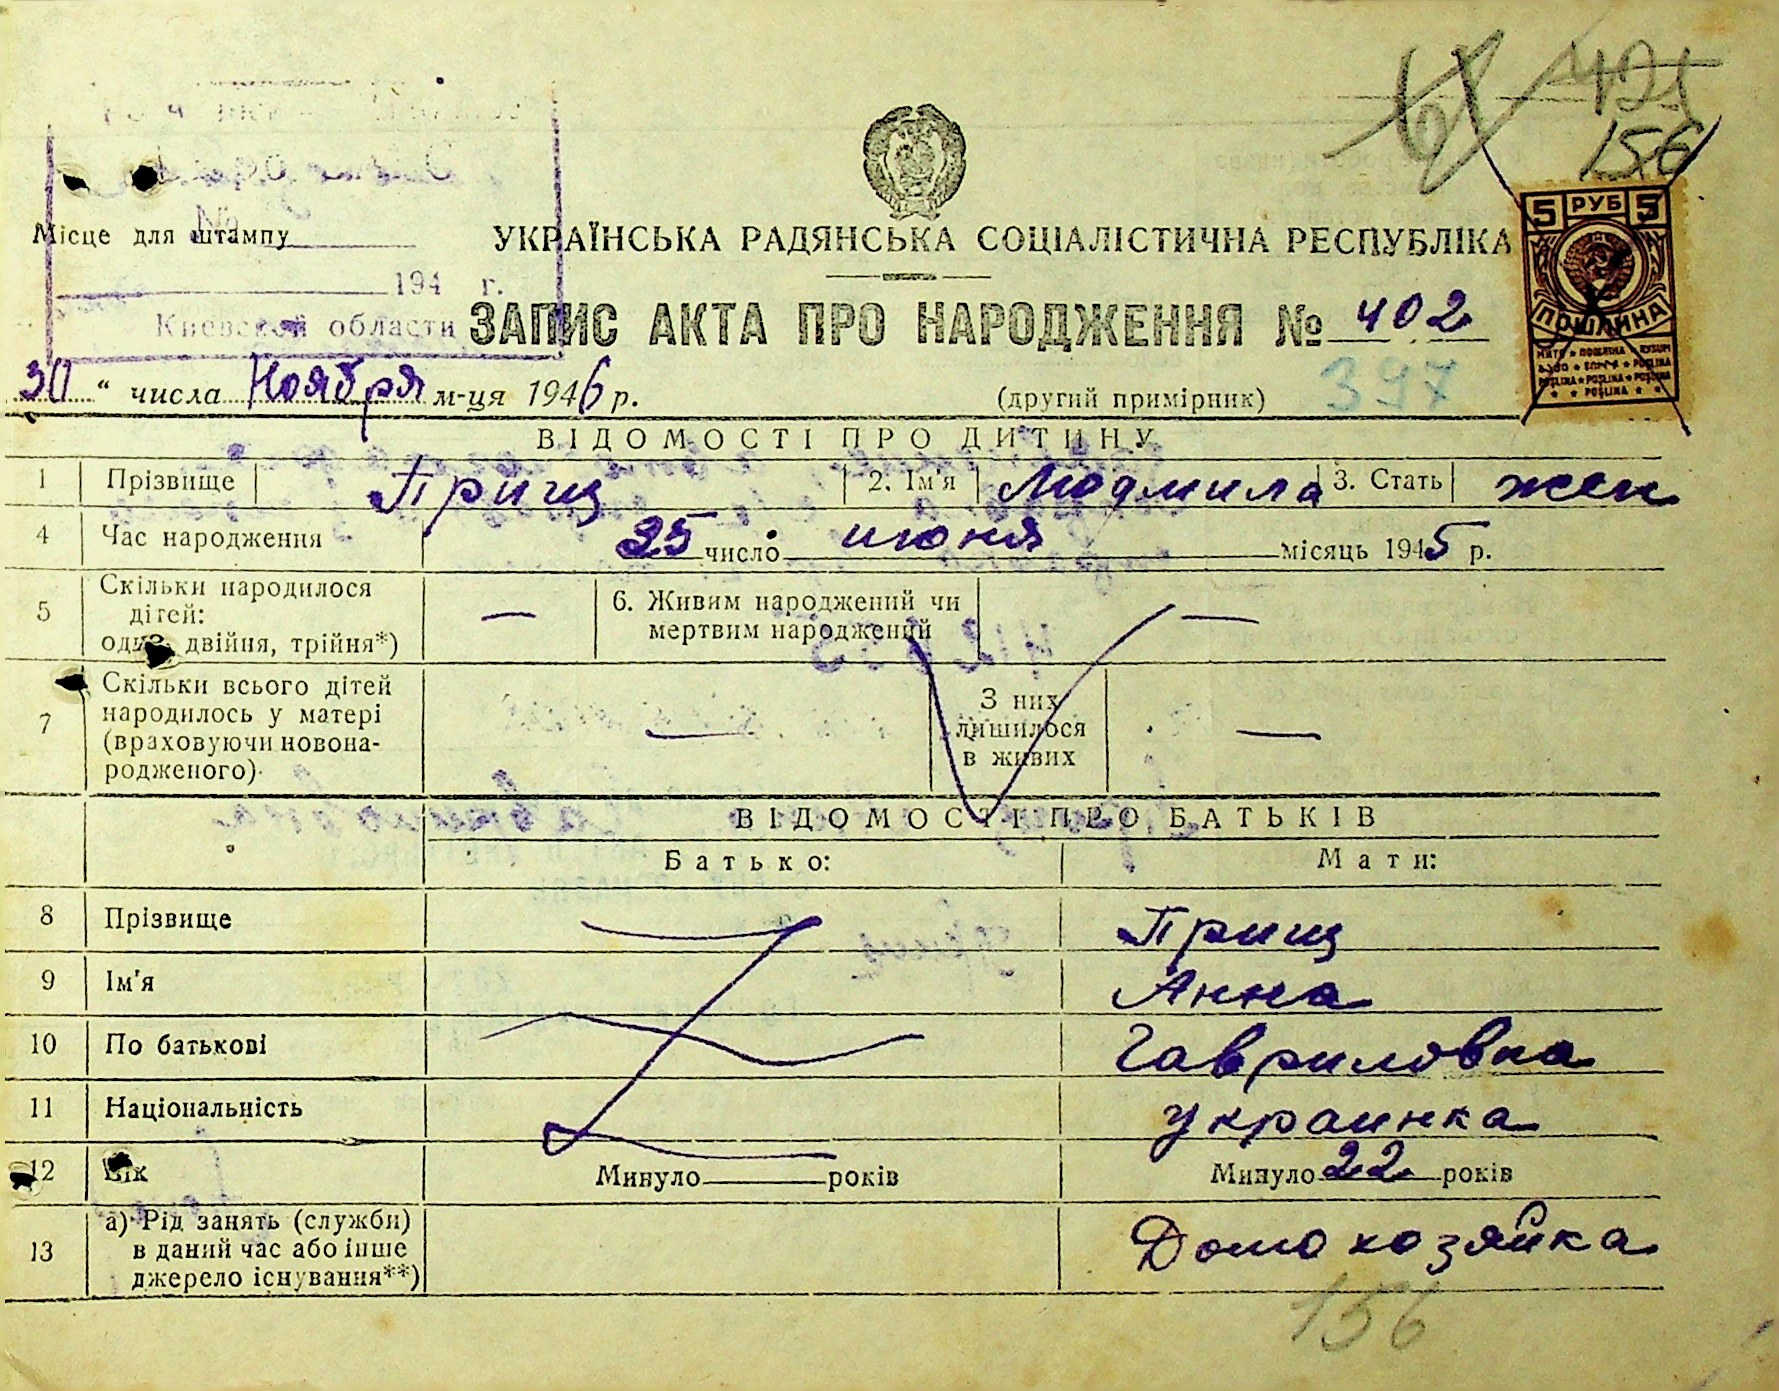 421
156
5 РУБ 5
ПОШЛИНА
Місце для штампу
УКРАЇНСЬКА РАДЯНСЬКА СОЦІАЛІСТИЧНА РЕСПУБЛІКА
194 г.
Киевской области
ЗАПИС АКТА ПРО НАРОДЖЕННЯ № 402
30 " числа Ноября м-ця 1946 р.
(другий примірник) 397
ВІДОМОСТІ ПРО ДИТИНУ
1 Прізвище Прищ 2. Ім'я Людмила 3. Стать жен
4 Час народження 25 число июня місяць 1945 р.
5 Скільки народилося дітей: одне, двійня, трійня*) — 6. Живим народжений чи мертвим народжений —
7 Скільки всього дітей народилось у матері (враховуючи новонародженого) — З них лишилося в живих —
ВІДОМОСТІ ПРО БАТЬКІВ
Батько: Мати:
8 Прізвище Прищ
9 Ім'я Анна
10 По батькові Гавриловна
11 Національність украинка
12 Вік Минуло років Минуло 22 років
13 а) Рід занять (служби) в даний час або інше джерело існування**) Домохозяйка
156